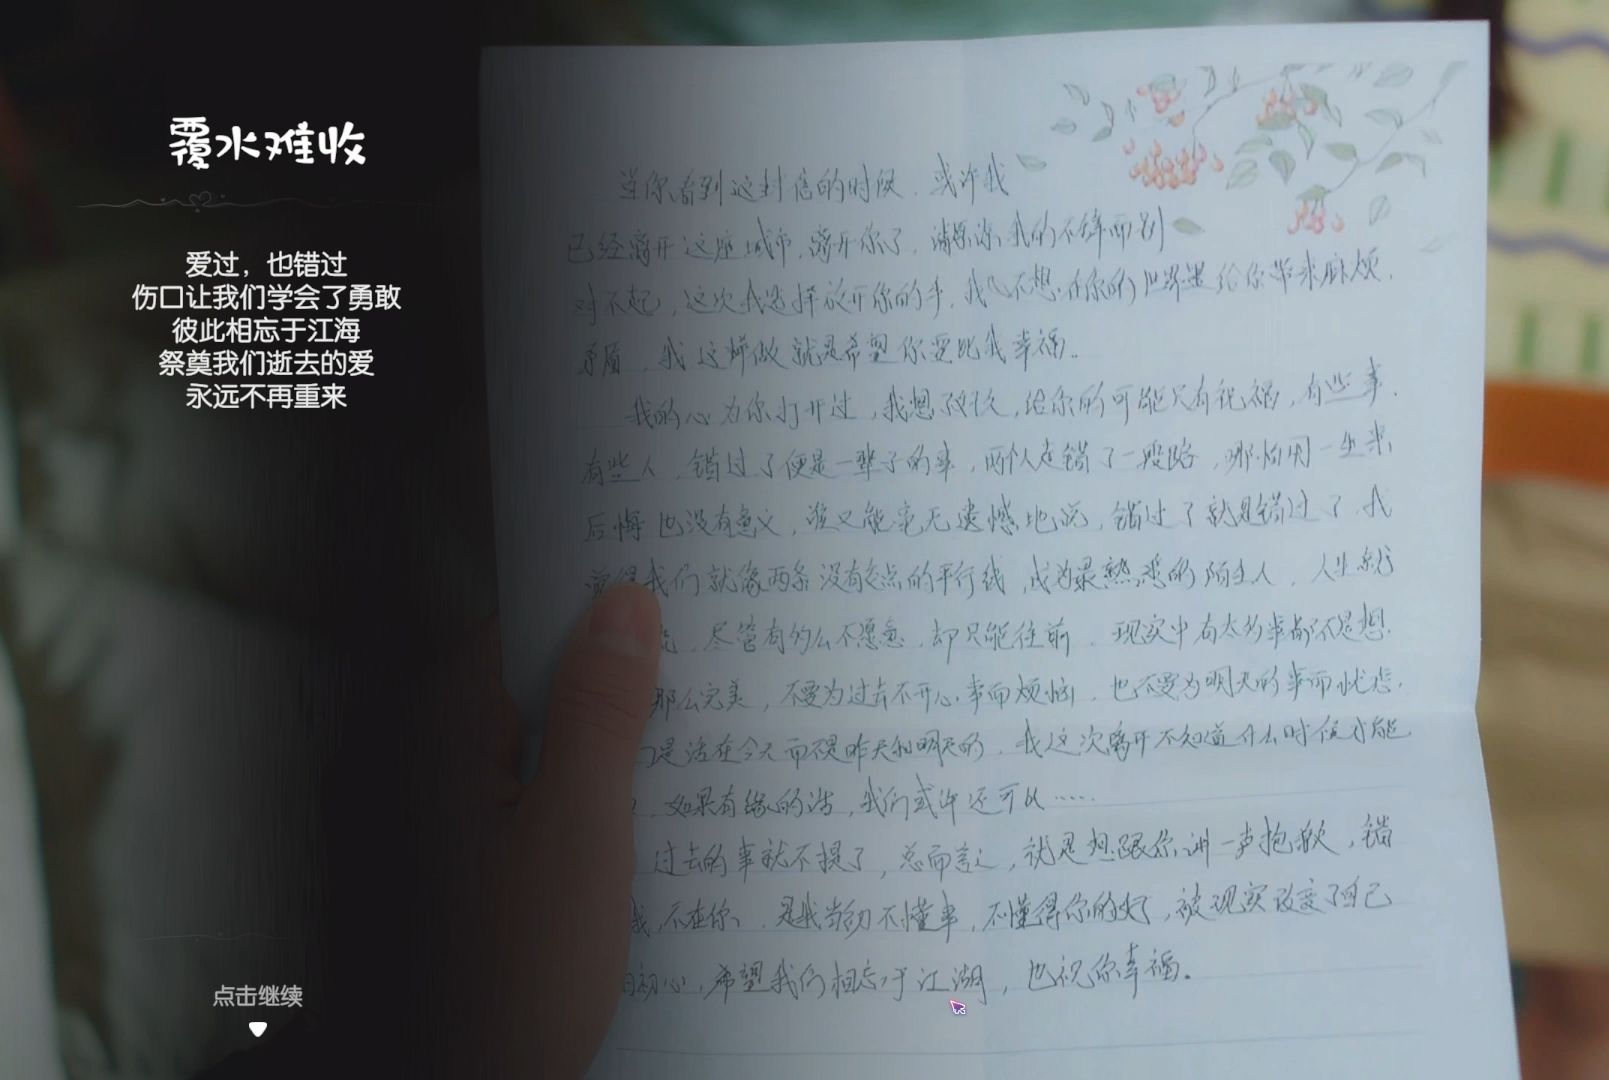 覆水难收
爱过，也错过
伤口让我们学会了勇敢
彼此相忘于江海
祭奠我们逝去的爱
永远不再重来
点击继续
当你看到这封信的时候，或许我
已经离开这座城市，离开你了，请原谅我的不辞而别
对不起，这次我选择放开你的手，我不想在你的世界里给你带来麻烦，
矛盾，我这样做就是希望你要比我幸福。
我的心为你打开过，我想了很久，给你的可能只有祝福，有些事，
有些人，错过了便是一辈子的事，两个人走错了一段路，哪怕用一生来
后悔也没有意义，谁又能毫无遗憾地说，错过了就是错过了，我
觉得我们就像两条没有交点的平行线，成为最熟悉的陌生人，人生就
，尽管有的么不愿意，却只能往前，现实中有太多事都不是想
那么完美，不要为过去不开心事而烦恼，也不要为明天的事而忧愁，
是活在今天而不是昨天和明天的，我这次离开不知道什么时候才能
，如果有缘的话，我们或许还可以……
过去的事就不提了，总而言之，就是想跟你讲一声抱歉，错
我，不在你，是我当初不懂事，不懂得你的好，被现实改变了自己
初心，希望我们相忘于江湖，也祝你幸福。